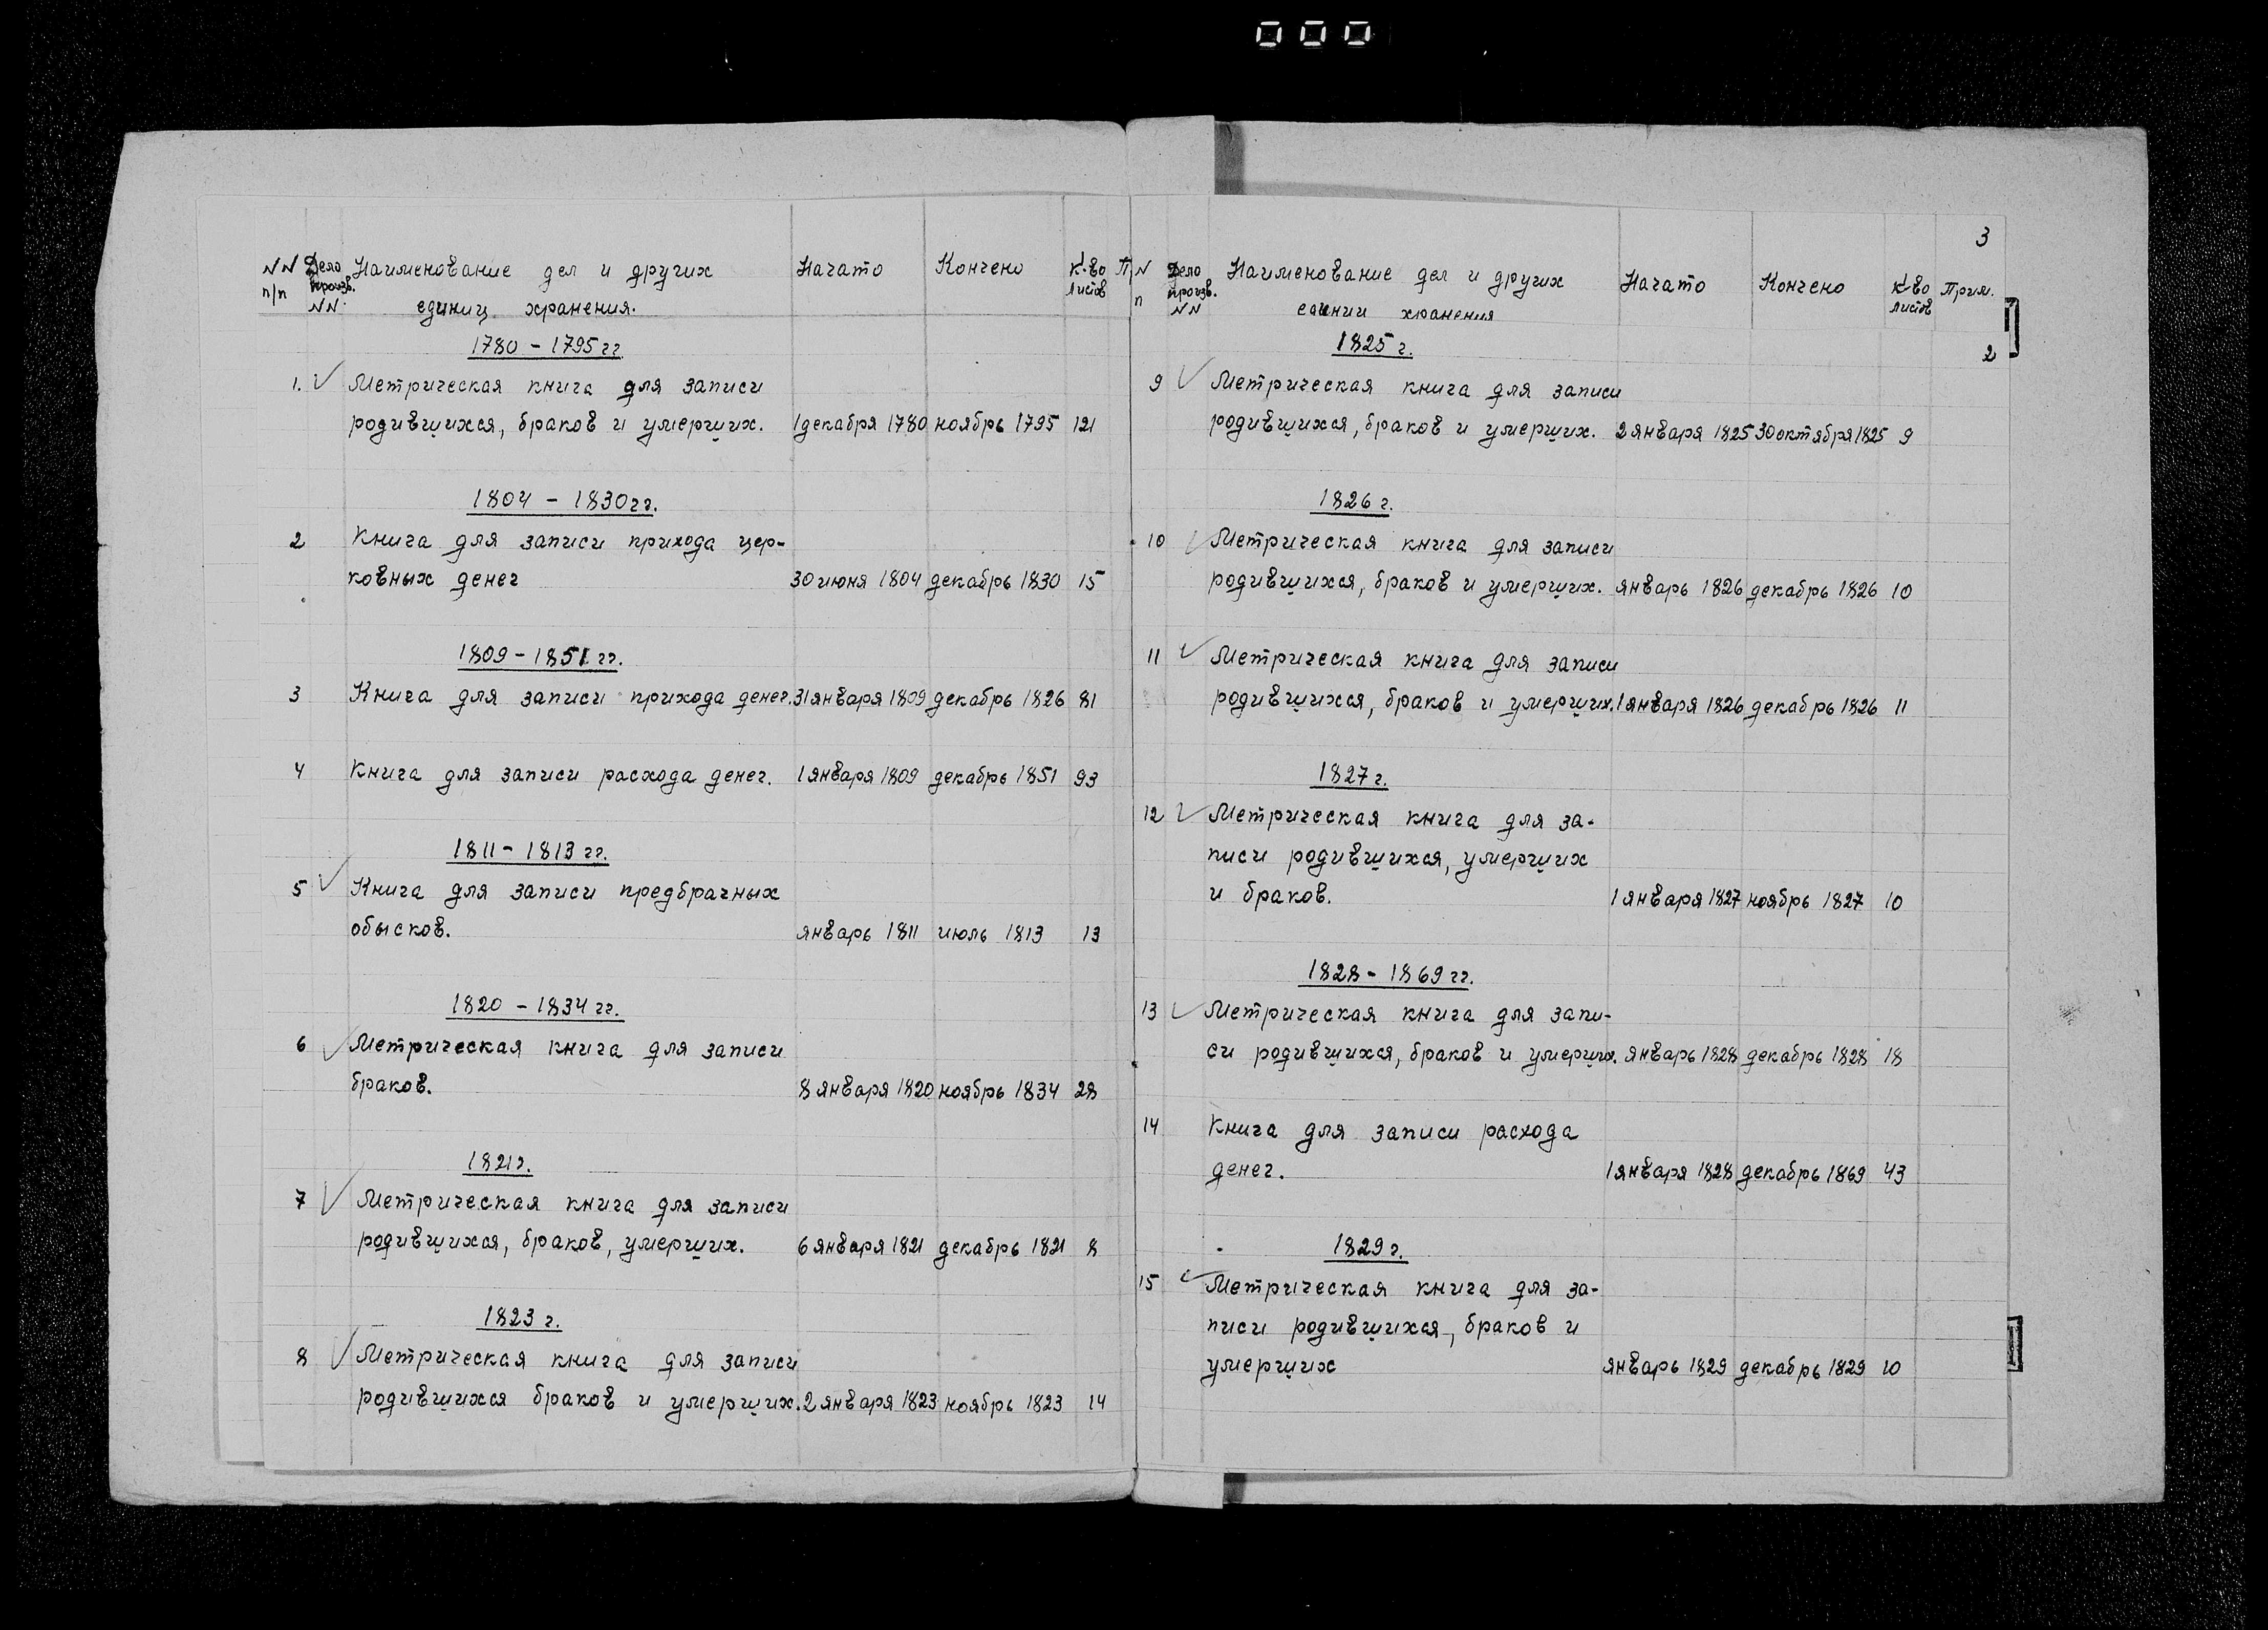 000
NN Дело Наименование дел и других Начато Кончено К-во П
п/п произв. единиц хранения. листов
NN
1780 - 1795 гг.
1. Метрическая книга для записи
родившихся, браков и умерших. 1 декабря 1780 ноябрь 1795 121
1804 - 1830 гг.
2 Книга для записи прихода цер-
ковных денег 30 июня 1804 декабрь 1830 15
1809 - 1851 гг.
3 Книга для записи прихода денег. 31 января 1809 декабрь 1826 81
4 Книга для записи расхода денег. 1 января 1809 декабрь 1851 93
1811 - 1813 гг.
5 Книга для записи предбрачных
обысков. январь 1811 июль 1813 13
1820 - 1834 гг.
6 Метрическая книга для записи
браков. 8 января 1820 ноябрь 1834 28
1821 г.
7 Метрическая книга для записи
родившихся, браков, умерших. 6 января 1821 декабрь 1821 8
1823 г.
8 Метрическая книга для записи
родившихся браков и умерших. 2 января 1823 ноябрь 1823 14
3
N Дело Наименование дел и других Начато Кончено К-во Прим.
п произв. единиц хранения листов
NN
2
1825 г.
9 Метрическая книга для записи
родившихся, браков и умерших. 2 января 1825 30 октября 1825 9
1826 г.
10 Метрическая книга для записи
родившихся, браков и умерших. январь 1826 декабрь 1826 10
11 Метрическая книга для записи
родившихся, браков и умерших. 1 января 1826 декабрь 1826 11
1827 г.
12 Метрическая книга для за-
писи родившихся, умерших
и браков. 1 января 1827 ноябрь 1827 10
1828 - 1869 гг.
13 Метрическая книга для запи-
си родившихся, браков и умерших. январь 1828 декабрь 1828 18
14 Книга для записи расхода
денег. 1 января 1828 декабрь 1869 43
1829 г.
15 Метрическая книга для за-
писи родившихся, браков и
умерших январь 1829 декабрь 1829 10